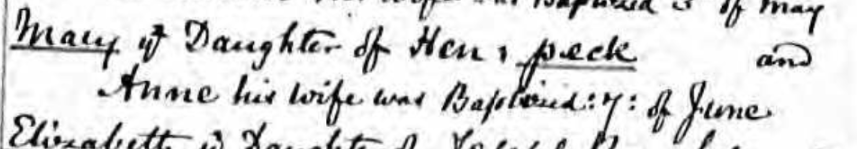 his wife was Baptized 3 of may
Mary yᵉ Daughter of Hen: peck and
Anne his wife was Baptized: 7: of June
Elizabeth yᵉ Daughter of